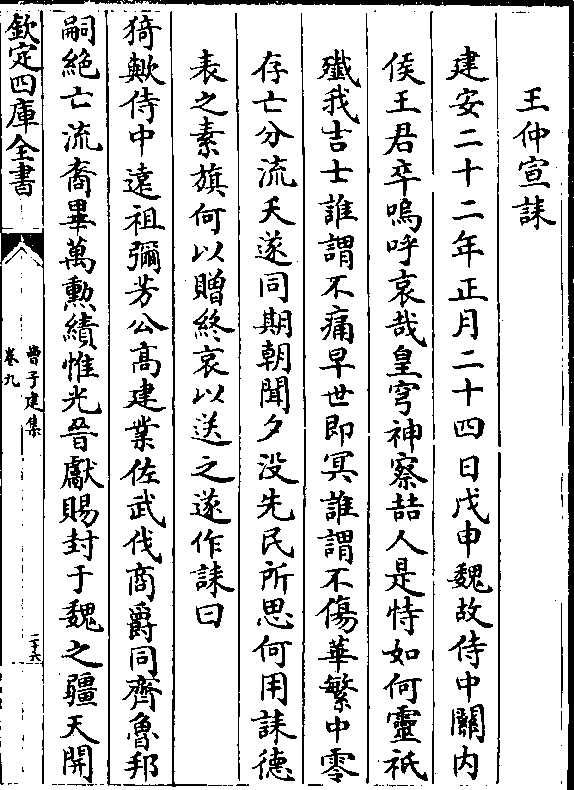 王仲宣誄
建安二十二年正月二十四日戊申魏故侍中關内
侯王君卒嗚呼哀哉皇穹神察喆人是恃如何靈祇
殲我吉士誰謂不痛早世即冥誰謂不傷華繁中零
存亡分流夭遂同期朝聞夕没先民所思何用誄德
表之素旗何以贈終哀以送之遂作誄曰
猗歟侍中遠祖彌芳公高建業佐武伐商爵同齊魯邦
嗣絶亡流裔畢萬勲績惟光晉獻賜封于魏之疆天開
欽定四庫全書
曹子建集
卷九
二十六